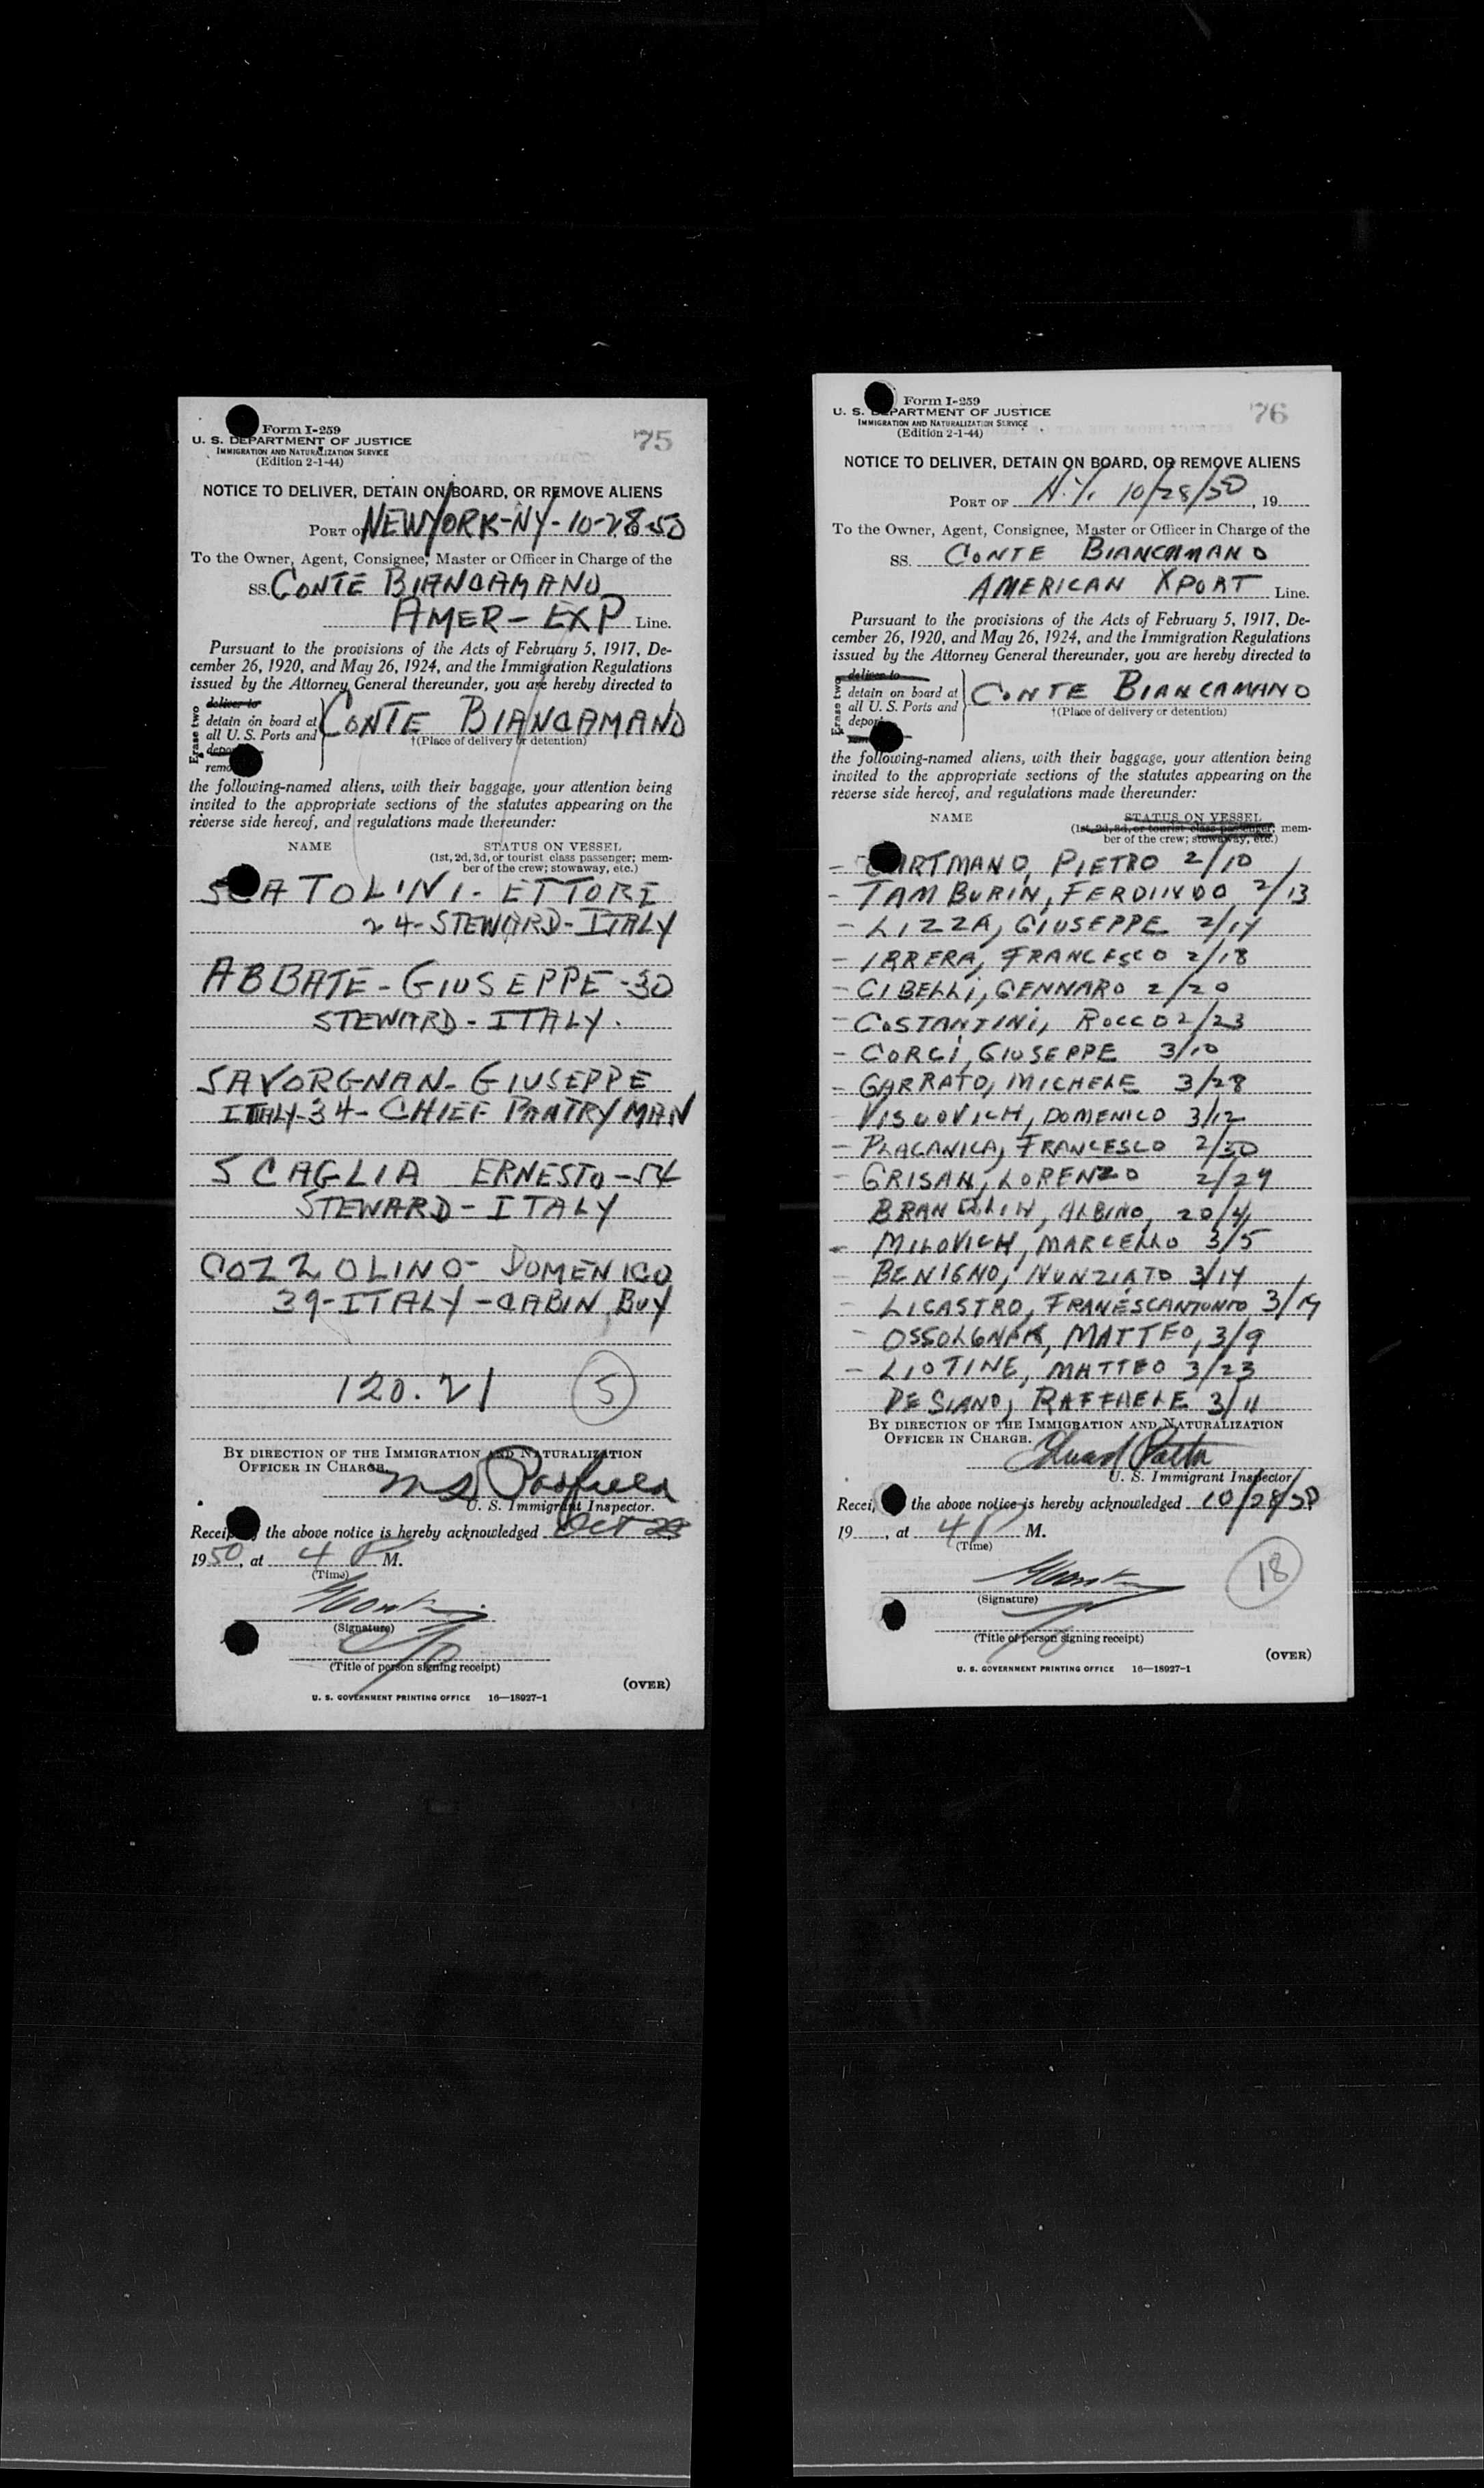 Form I-259
U. S. DEPARTMENT OF JUSTICE
IMMIGRATION AND NATURALIZATION SERVICE
(Edition 2-1-44)
75
NOTICE TO DELIVER, DETAIN ON BOARD, OR REMOVE ALIENS
PORT OF NEW YORK-NY-10-28-50
To the Owner, Agent, Consignee, Master or Officer in Charge of the
SS. CONTE BIANCAMANO
AMER-EXP Line.
Pursuant to the provisions of the Acts of February 5, 1917, De-
cember 26, 1920, and May 26, 1924, and the Immigration Regulations
issued by the Attorney General thereunder, you are hereby directed to
Erase two
deliver to
detain on board at
all U. S. Ports and
CONTE BIANCAMANO
†(Place of delivery or detention)
the following-named aliens, with their baggage, your attention being
invited to the appropriate sections of the statutes appearing on the
reverse side hereof, and regulations made thereunder:
NAME STATUS ON VESSEL
(1st, 2d, 3d, or tourist class passenger; mem-
ber of the crew; stowaway, etc.)
SCATOLINI - ETTORE
24-STEWARD-ITALY
ABBATE - GIUSEPPE -30
STEWARD - ITALY.
SAVORGNAN - GIUSEPPE
ITALY-34- CHIEF PANTRYMAN
SCAGLIA ERNESTO -54
STEWARD - ITALY
COZZOLINO - DOMENICO
39-ITALY-CABIN BOY
120.21 5
BY DIRECTION OF THE IMMIGRATION AND NATURALIZATION
OFFICER IN CHARGE.
U. S. Immigrant Inspector.
the above notice is hereby acknowledged Oct 28
1950, at 4 P M.
(Time)
(Signature)
(Title of person signing receipt)
(OVER)
U. S. GOVERNMENT PRINTING OFFICE 16—18927-1
Form I-259
U. S. DEPARTMENT OF JUSTICE
IMMIGRATION AND NATURALIZATION SERVICE
(Edition 2-1-44)
76
NOTICE TO DELIVER, DETAIN ON BOARD, OR REMOVE ALIENS
PORT OF N.Y. 10/28/50, 19
To the Owner, Agent, Consignee, Master or Officer in Charge of the
SS. CONTE BIANCAMANO
AMERICAN XPORT Line.
Pursuant to the provisions of the Acts of February 5, 1917, De-
cember 26, 1920, and May 26, 1924, and the Immigration Regulations
issued by the Attorney General thereunder, you are hereby directed to
Erase two
deliver to
detain on board at
all U. S. Ports and
CONTE BIANCAMANO
†(Place of delivery or detention)
the following-named aliens, with their baggage, your attention being
invited to the appropriate sections of the statutes appearing on the
reverse side hereof, and regulations made thereunder:
NAME STATUS ON VESSEL
(1st, 2d, 3d, or tourist class passenger; mem-
ber of the crew; stowaway, etc.)
PIETRO 2/10
- TAMBURIN, FERDINDO 2/13
- LIZZA, GIUSEPPE 2/14
- IRRERA, FRANCESCO 2/18
- CIBELLI, GENNARO 2/20
- COSTANTINI, ROCCO 2/23
- CORCI, GIUSEPPE 3/10
- GARRATO, MICHELE 3/28
- VISCOVICH, DOMENICO 3/12
- PLACANICA, FRANCESCO 2/30
- GRISAN, LORENZO 2/29
ALBINO, 20/4
- MILOVICH, MARCELLO 3/5
- BENIGNO, NUNZIATO 3/14
- LICASTRO, FRANESCANTONIO 3/19
- MATTEO, 3/9
- LIOTINE, MATTEO 3/23
DE SIANO, RAFFAELE 3/11
BY DIRECTION OF THE IMMIGRATION AND NATURALIZATION
OFFICER IN CHARGE.
U. S. Immigrant Inspector
the above notice is hereby acknowledged 10/28/50
19 , at 4 P M.
(Time)
18
(Signature)
(Title of person signing receipt)
(OVER)
U. S. GOVERNMENT PRINTING OFFICE 16—18927-1